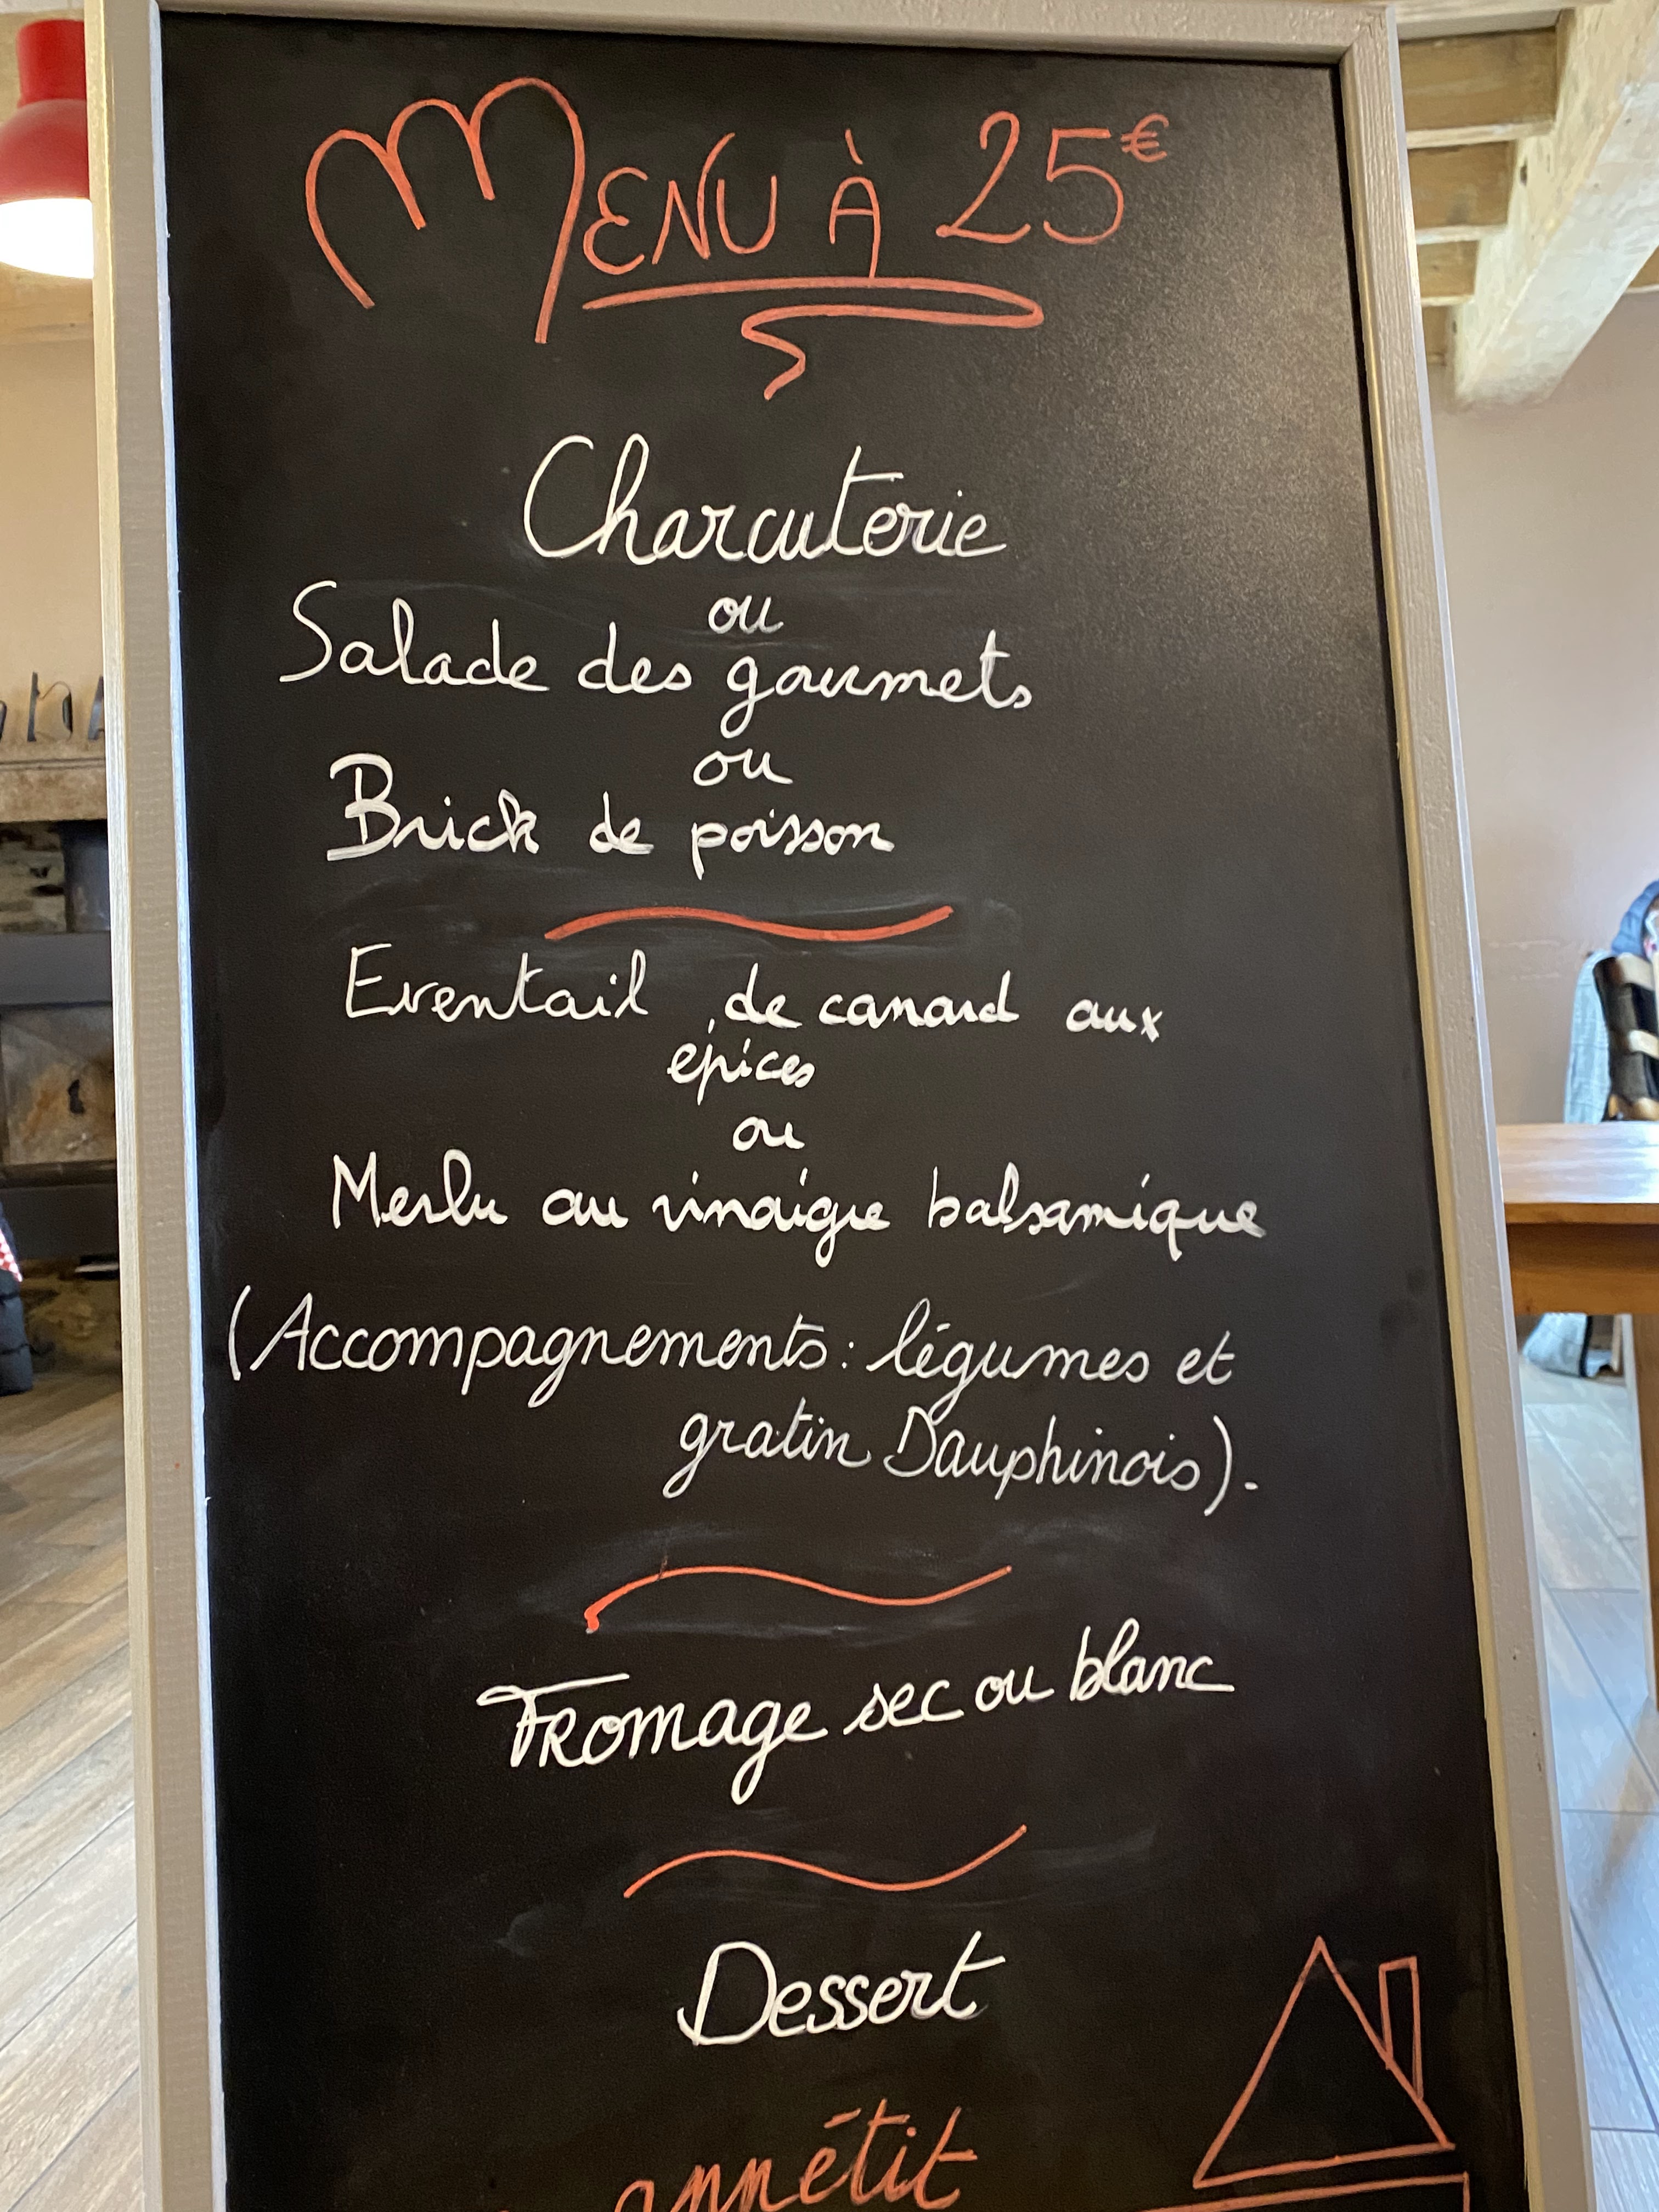 MENU À 25€
Charcuterie
ou
Salade des gourmets
ou
Brick de poisson
Eventail de canard aux
épices
ou
Merlu au vinaigre balsamique
(Accompagnements : légumes et
gratin Dauphinois).
Fromage sec ou blanc
Dessert
appétit